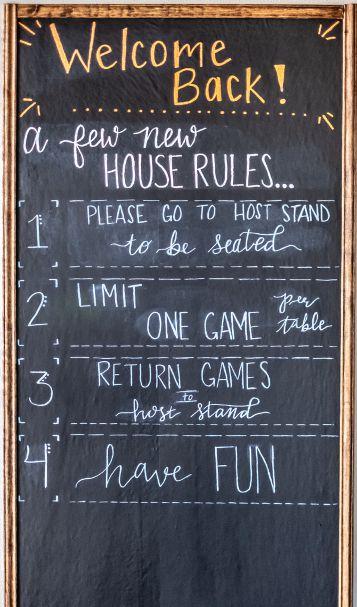 Welcome
Back!
a few new
HOUSE RULES...
1 PLEASE GO TO HOST STAND
to be seated
2 LIMIT
ONE GAME per table
3 RETURN GAMES
to
host stand
4 have FUN